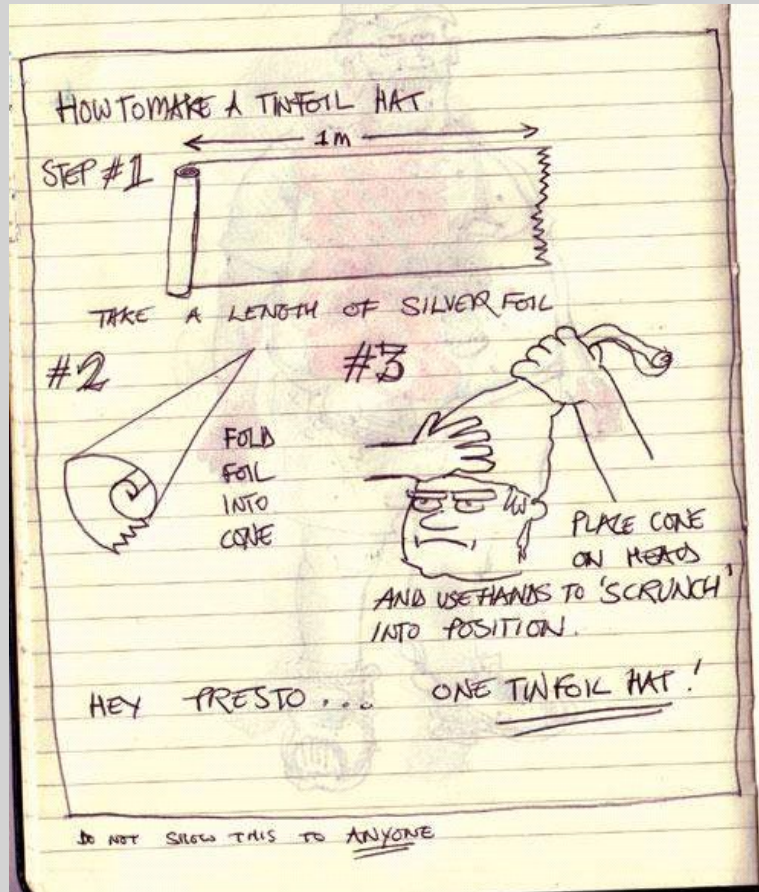 HOW TO MAKE A TINFOIL HAT
1m
STEP #1
TAKE A LENGTH OF SILVER FOIL
#2
FOLD
FOIL
INTO
CONE
#3
PLACE CONE
ON HEAD
AND USE HANDS TO 'SCRUNCH'
INTO POSITION.
HEY PRESTO... ONE TINFOIL HAT!
DO NOT SHOW THIS TO ANYONE